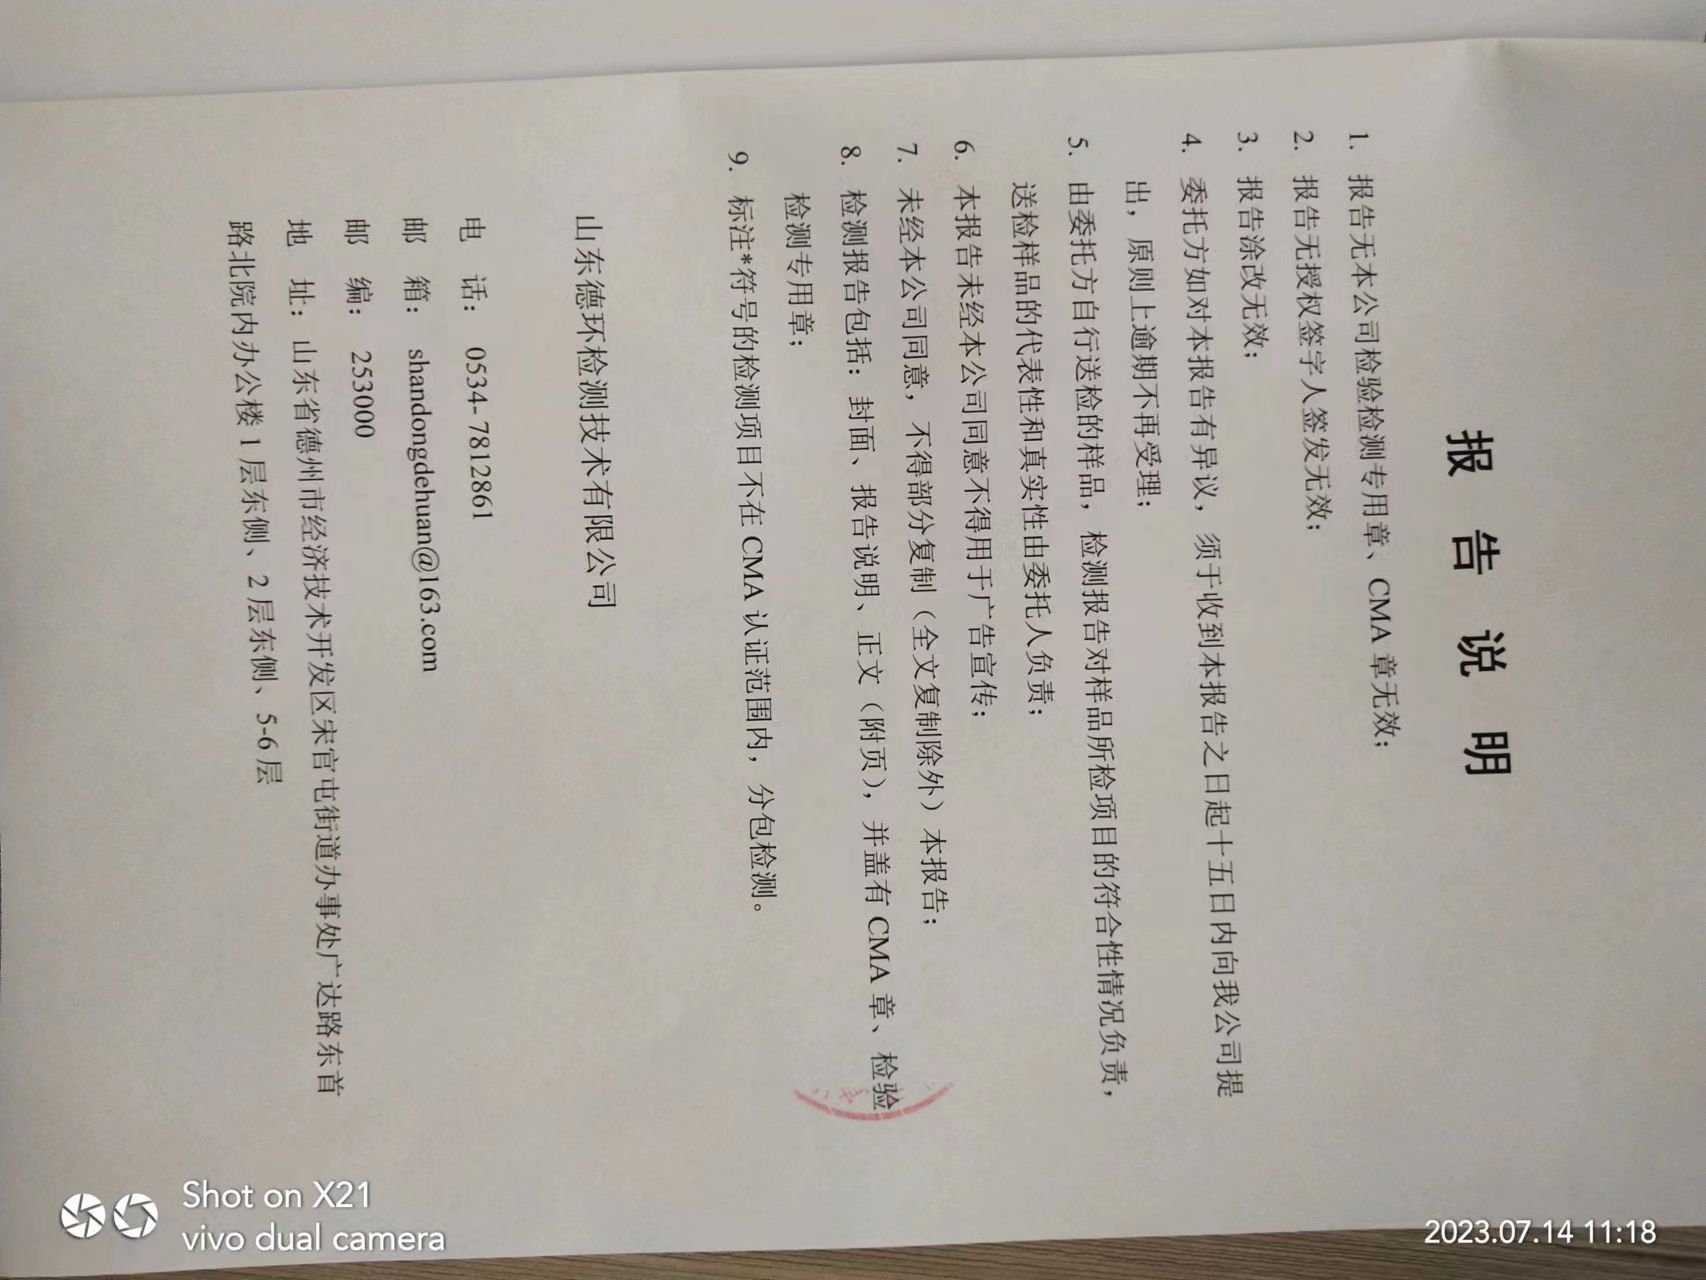 报告说明
1. 报告无本公司检验检测专用章、CMA 章无效；
2. 报告无授权签字人签发无效；
3. 报告涂改无效；
4. 委托方如对本报告有异议，须于收到本报告之日起十五日内向我公司提
出，原则上逾期不再受理；
5. 由委托方自行送检的样品，检测报告对样品所检项目的符合性情况负责，
送检样品的代表性和真实性由委托人负责；
6. 本报告未经本公司同意不得用于广告宣传；
7. 未经本公司同意，不得部分复制（全文复制除外）本报告；
8. 检测报告包括：封面、报告说明、正文（附页），并盖有 CMA 章、检验
检测专用章；
9. 标注*符号的检测项目不在 CMA 认证范围内，分包检测。
山东德环检测技术有限公司
电 话： 0534- 7812861
邮 箱： shandongdehuan@163.com
邮 编： 253000
地 址： 山东省德州市经济技术开发区宋官屯街道办事处广达路东首
路北院内办公楼 1 层东侧、2 层东侧、5-6 层
Shot on X21
vivo dual camera
2023.07.14 11:18